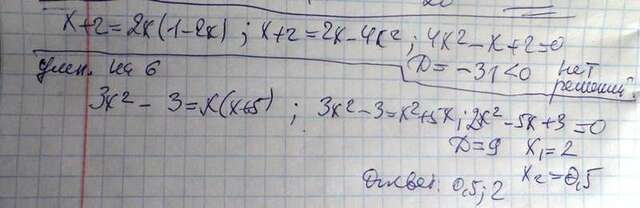 x+2=2x(1-2x) ; x+2=2x-4x²; 4x²-x+2=0
умн. на 6
D= -31<0 нет решений.
3x²-3=x(x+5) ; 3x²-3=x²+5x; 2x²-5x+3=0
D=9 x₁=2
x₂=0,5
Ответ: 0,5; 2